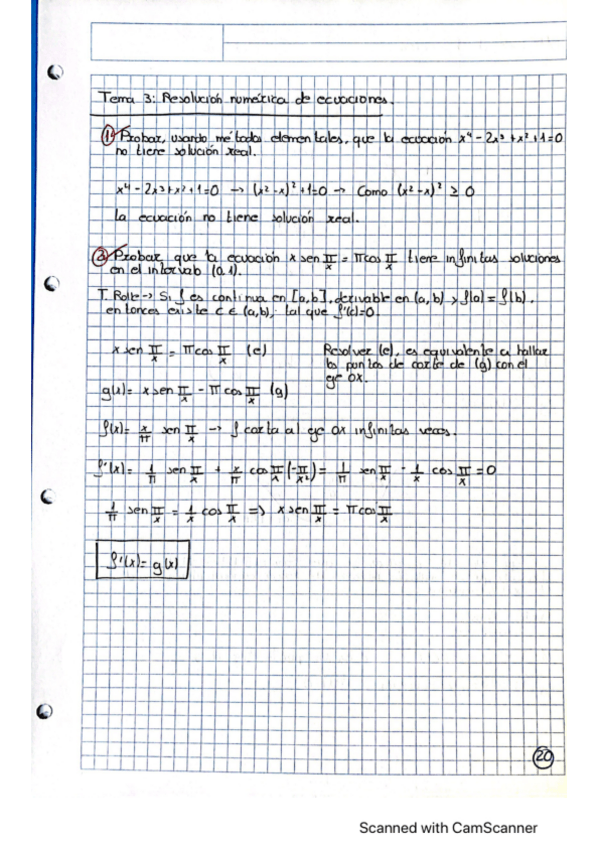 Tema 3: Resolución numérica de ecuaciones.
1) Probar, usando métodos elementales, que la ecuación x⁴ - 2x³ + x² + 1 = 0
no tiene solución real.
x⁴ - 2x³ + x² + 1 = 0 → (x² - x)² + 1 = 0 → Como (x² - x)² ≥ 0
la ecuación no tiene solución real.
2) Probar que la ecuación x sen π/x = π cos π/x tiene infinitas soluciones
en el intervalo (0,1).
T. Rolle → Si f es continua en [a,b], derivable en (a,b) y f(a) = f(b),
entonces existe c ∈ (a,b), tal que f'(c)=0.
x sen π/x = π cos π/x (e)
Resolver (e), es equivalente a hallar
los puntos de corte de (g) con el
eje OX.
g(x) = x sen π/x - π cos π/x (g)
f(x) = x/π sen π/x → f corta al eje OX infinitas veces.
f'(x) = 1/π sen π/x + x/π cos π/x (-π/x²) = 1/π sen π/x - 1/x cos π/x = 0
1/π sen π/x = 1/x cos π/x ⇒ x sen π/x = π cos π/x
f'(x) = g(x)
20
Scanned with CamScanner